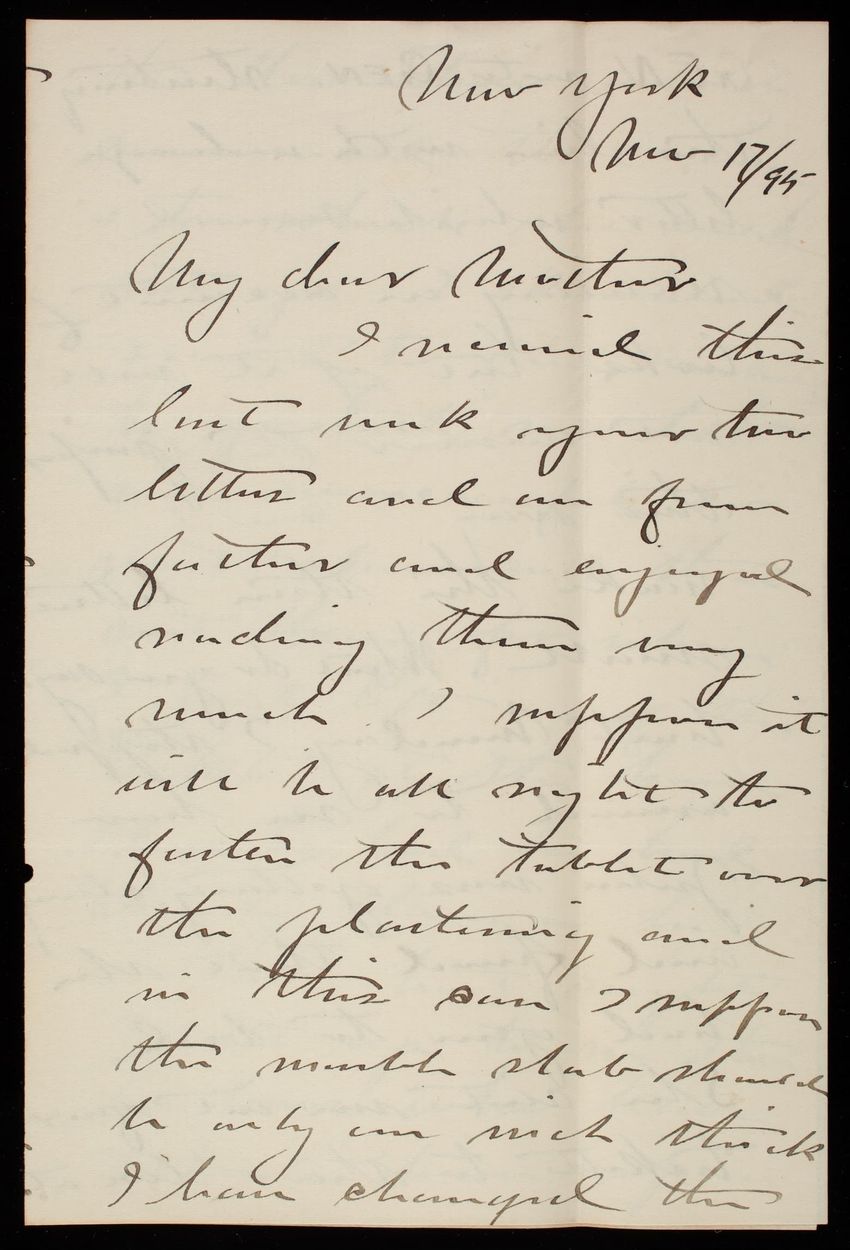 New York
Nov 17/95
My dear Mother
I received this
last week your two
letters and one from
father and enjoyed
reading them very
much. I suppose it
will be all right to
fasten the tablet over
the plastering and
in this case I suppose
the marble slab should
be only one inch thick
I have changed the